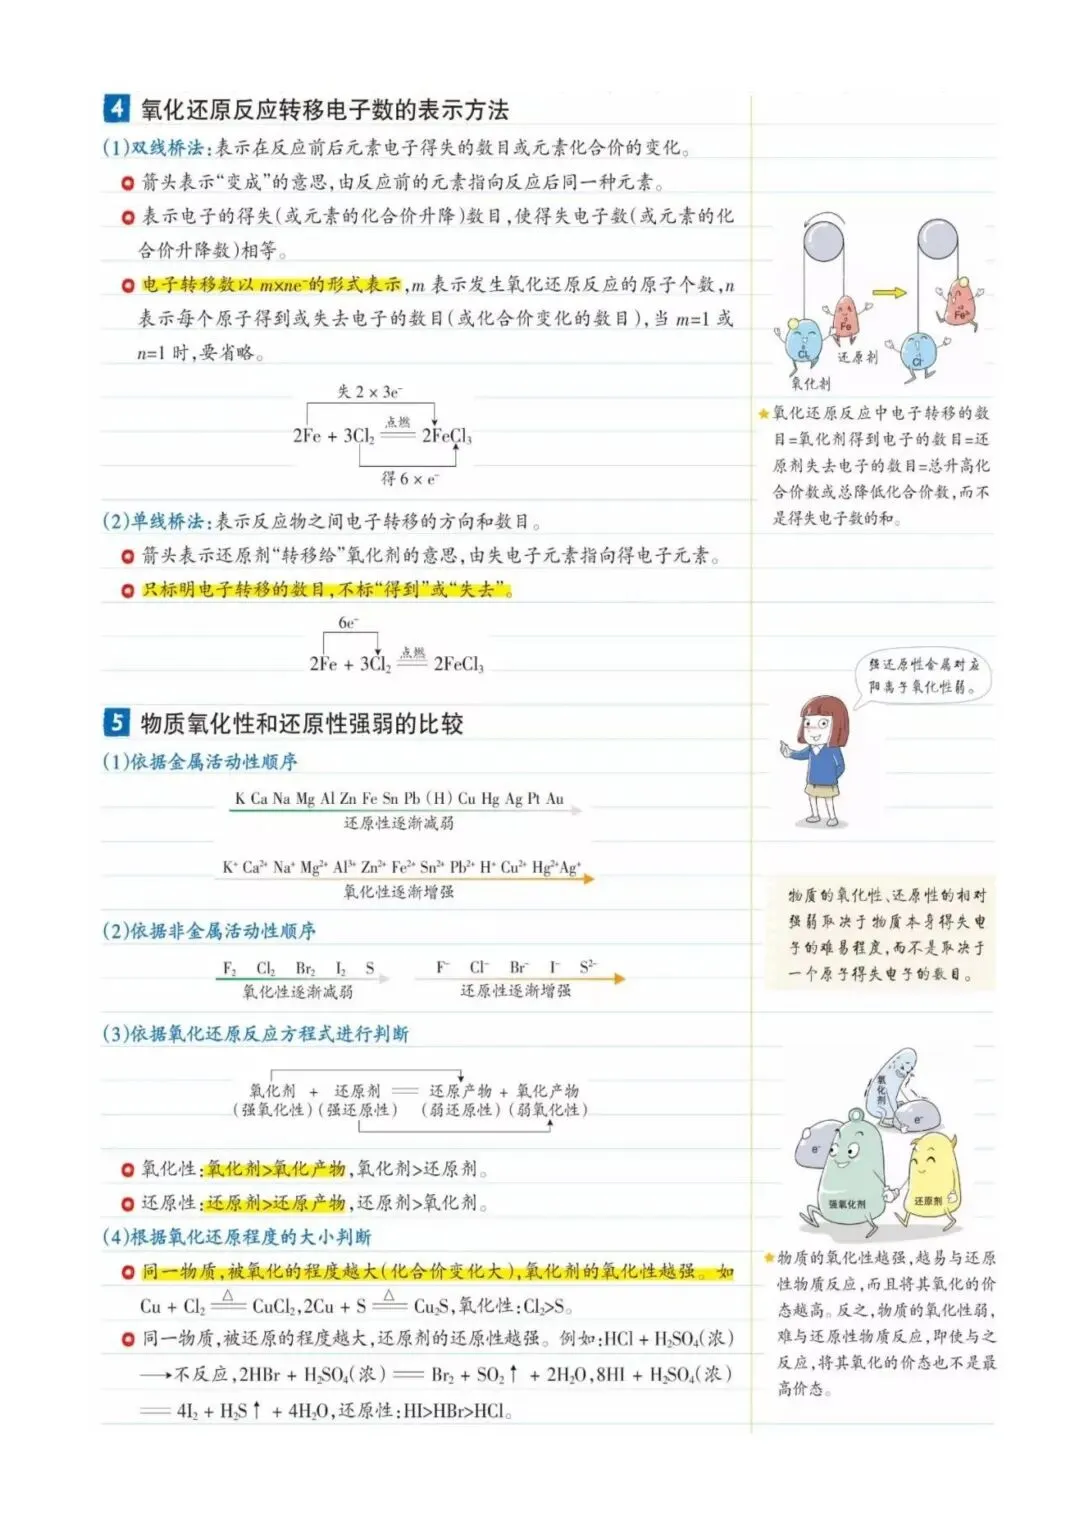 4 氧化还原反应转移电子数的表示方法
(1)双线桥法:表示在反应前后元素电子得失的数目或元素化合价的变化。
箭头表示“变成”的意思,由反应前的元素指向反应后同一种元素。
表示电子的得失(或元素的化合价升降)数目,使得失电子数(或元素的化
合价升降数)相等。
电子转移数以 m×ne⁻的形式表示,m 表示发生氧化还原反应的原子个数,n
表示每个原子得到或失去电子的数目(或化合价变化的数目),当 m=1 或
n=1 时,要省略。
失 2 × 3e⁻
点燃
2Fe + 3Cl₂ ══ 2FeCl₃
得 6 × e⁻
(2)单线桥法:表示反应物之间电子转移的方向和数目。
箭头表示还原剂“转移给”氧化剂的意思,由失电子元素指向得电子元素。
只标明电子转移的数目,不标“得到”或“失去”。
6e⁻
点燃
2Fe + 3Cl₂ ══ 2FeCl₃
5 物质氧化性和还原性强弱的比较
(1)依据金属活动性顺序
K Ca Na Mg Al Zn Fe Sn Pb (H) Cu Hg Ag Pt Au
还原性逐渐减弱
K⁺ Ca²⁺ Na⁺ Mg²⁺ Al³⁺ Zn²⁺ Fe²⁺ Sn²⁺ Pb²⁺ H⁺ Cu²⁺ Hg²⁺Ag⁺
氧化性逐渐增强
(2)依据非金属活动性顺序
F₂ Cl₂ Br₂ I₂ S
氧化性逐渐减弱
F⁻ Cl⁻ Br⁻ I⁻ S²⁻
还原性逐渐增强
(3)依据氧化还原反应方程式进行判断
氧化剂 + 还原剂 ══ 还原产物 + 氧化产物
(强氧化性)(强还原性) (弱还原性)(弱氧化性)
氧化性:氧化剂>氧化产物,氧化剂>还原剂。
还原性:还原剂>还原产物,还原剂>氧化剂。
(4)根据氧化还原程度的大小判断
同一物质,被氧化的程度越大(化合价变化大),氧化剂的氧化性越强。如
Cu + Cl₂ ══△ CuCl₂,2Cu + S ══△ Cu₂S,氧化性:Cl₂>S。
同一物质,被还原的程度越大,还原剂的还原性越强。例如:HCl + H₂SO₄(浓)
→不反应,2HBr + H₂SO₄(浓) ══ Br₂ + SO₂↑ + 2H₂O,8HI + H₂SO₄(浓)
══ 4I₂ + H₂S↑ + 4H₂O,还原性:HI>HBr>HCl。
Fe
Cl
还原剂
氧化剂
Cl⁻
★氧化还原反应中电子转移的数
目=氧化剂得到电子的数目=还
原剂失去电子的数目=总升高化
合价数或总降低化合价数,而不
是得失电子数的和。
强还原性金属对应
阳离子氧化性弱。
物质的氧化性、还原性的相对
强弱取决于物质本身得失电
子的难易程度,而不是取决于
一个原子得失电子的数目。
氧化剂
e⁻
e⁻
强氧化剂
还原剂
★物质的氧化性越强,越易与还原
性物质反应,而且将其氧化的价
态越高。反之,物质的氧化性弱,
难与还原性物质反应,即使与之
反应,将其氧化的价态也不是最
高价态。